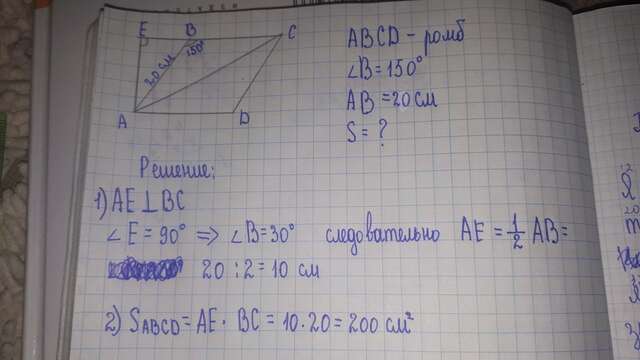 E B C
20 см 150°
A D
ABCD - ромб
∠B = 150°
AB = 20 см
S = ?
Решение:
1) AE ⊥ BC
∠E = 90° ⟹ ∠B = 30° следовательно AE = 1/2 AB =
20 : 2 = 10 см
2) SABCD = AE · BC = 10 · 20 = 200 см²